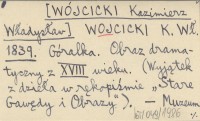 [WÓJCICKI Kazimierz
Władysław] WOJCICKI K. Wł.
1839. Góralka. Obraz drama-
tyczny z XVIII wieku. (Wyjątek
z dzieła w rękopiśmie „Stare
Gawędy i Obrazy"). — Muzeum